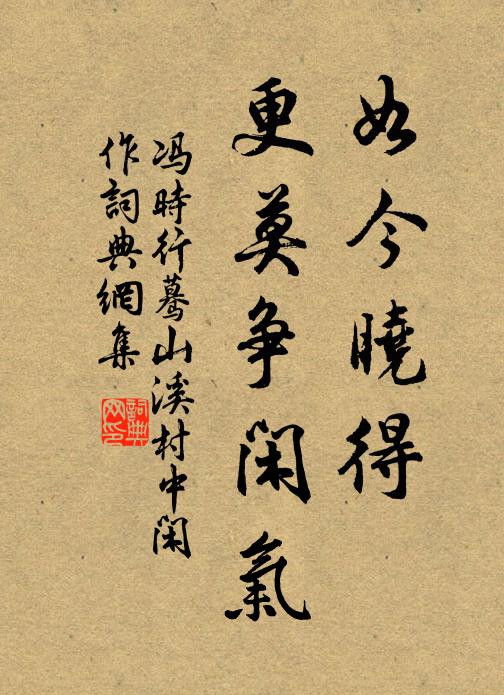 如今曉得
更莫爭閑氣
冯時行蓦山溪村中閑
作詞典網集
詞典网印